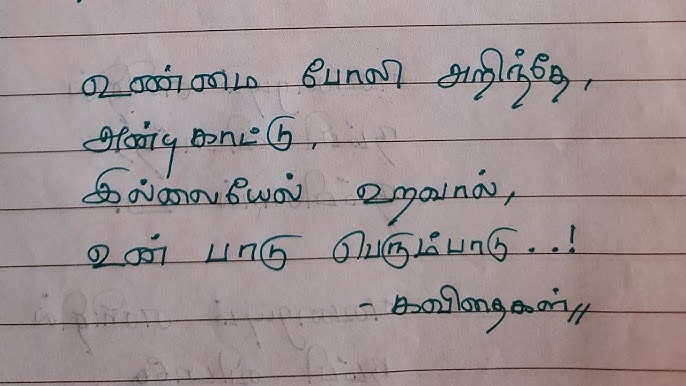 உண்மை போலி அறிந்தே,
அன்பு காட்டு,
இல்லையேல் உறவால்,
உன் பாடு பெரும்பாடு...!
- கவிதைகள்//